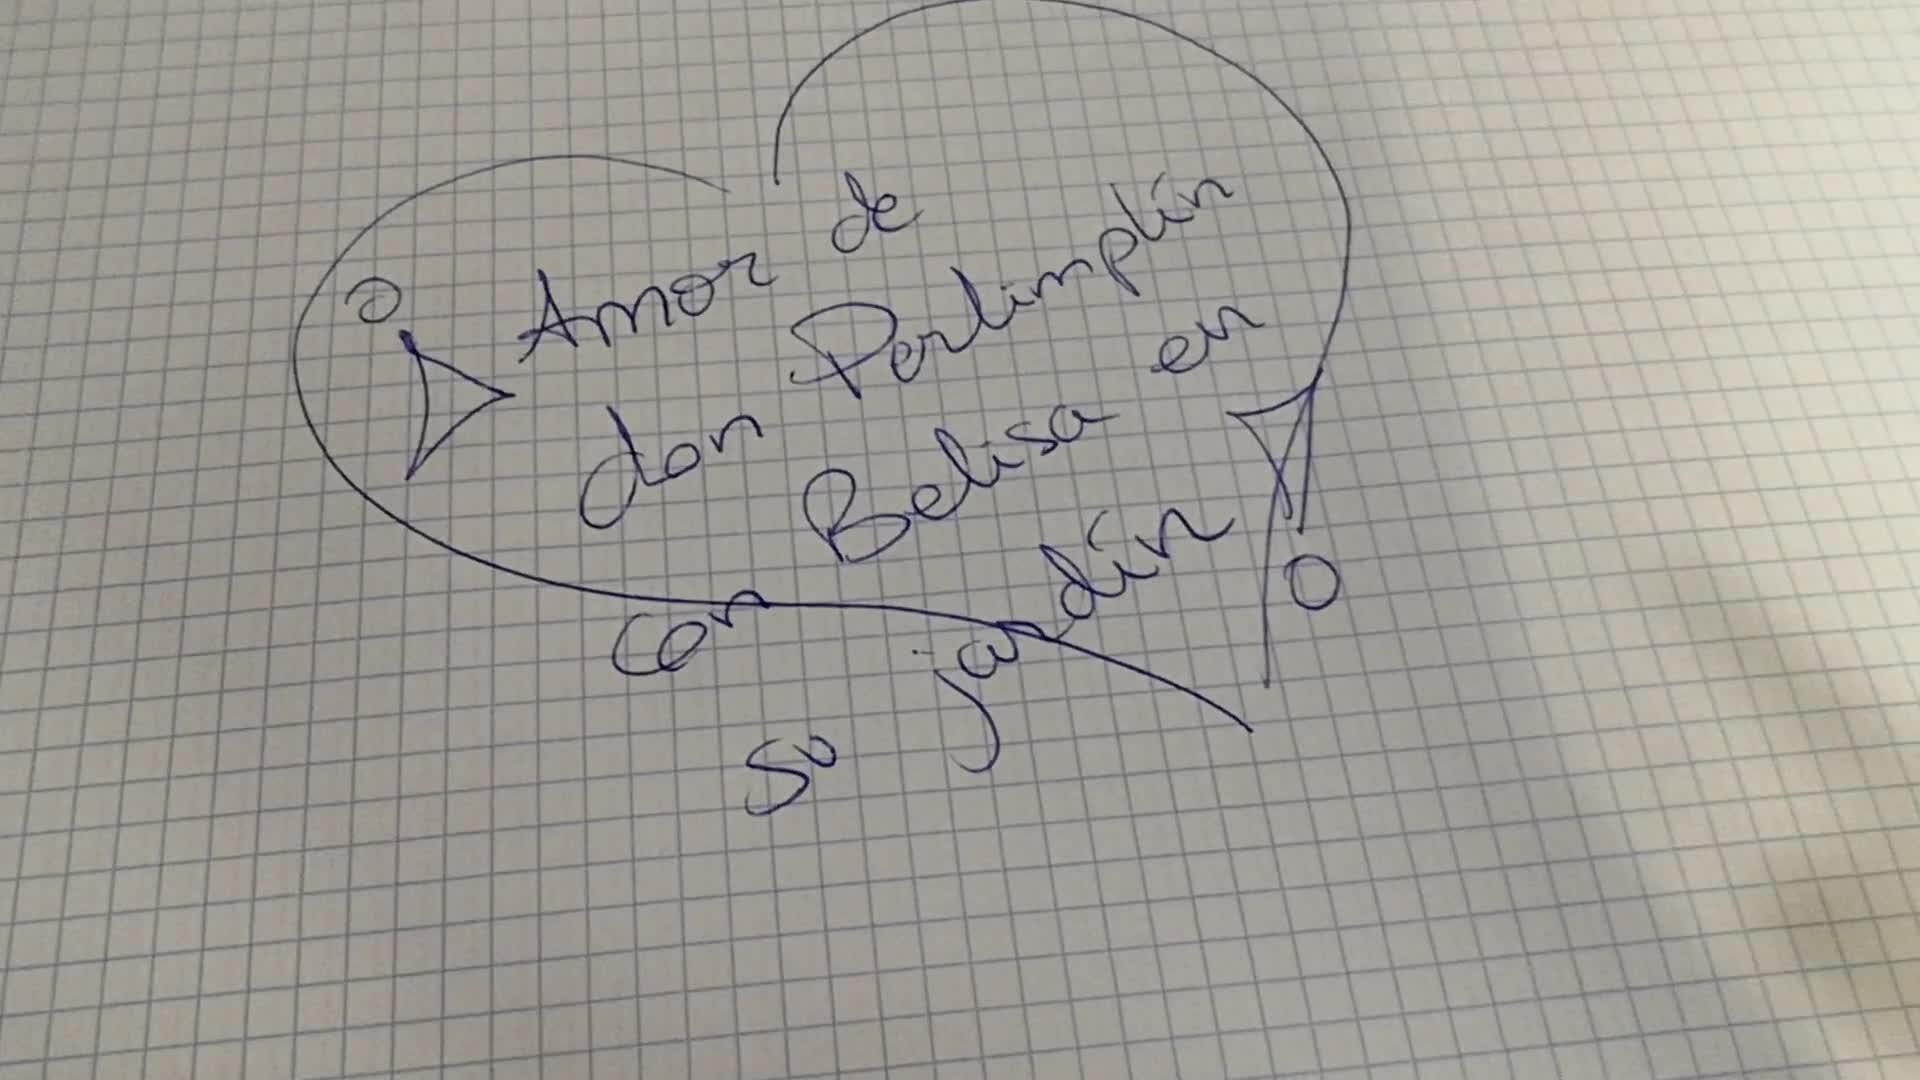 Amor de
don Perlimplín
con Belisa en
so jardín